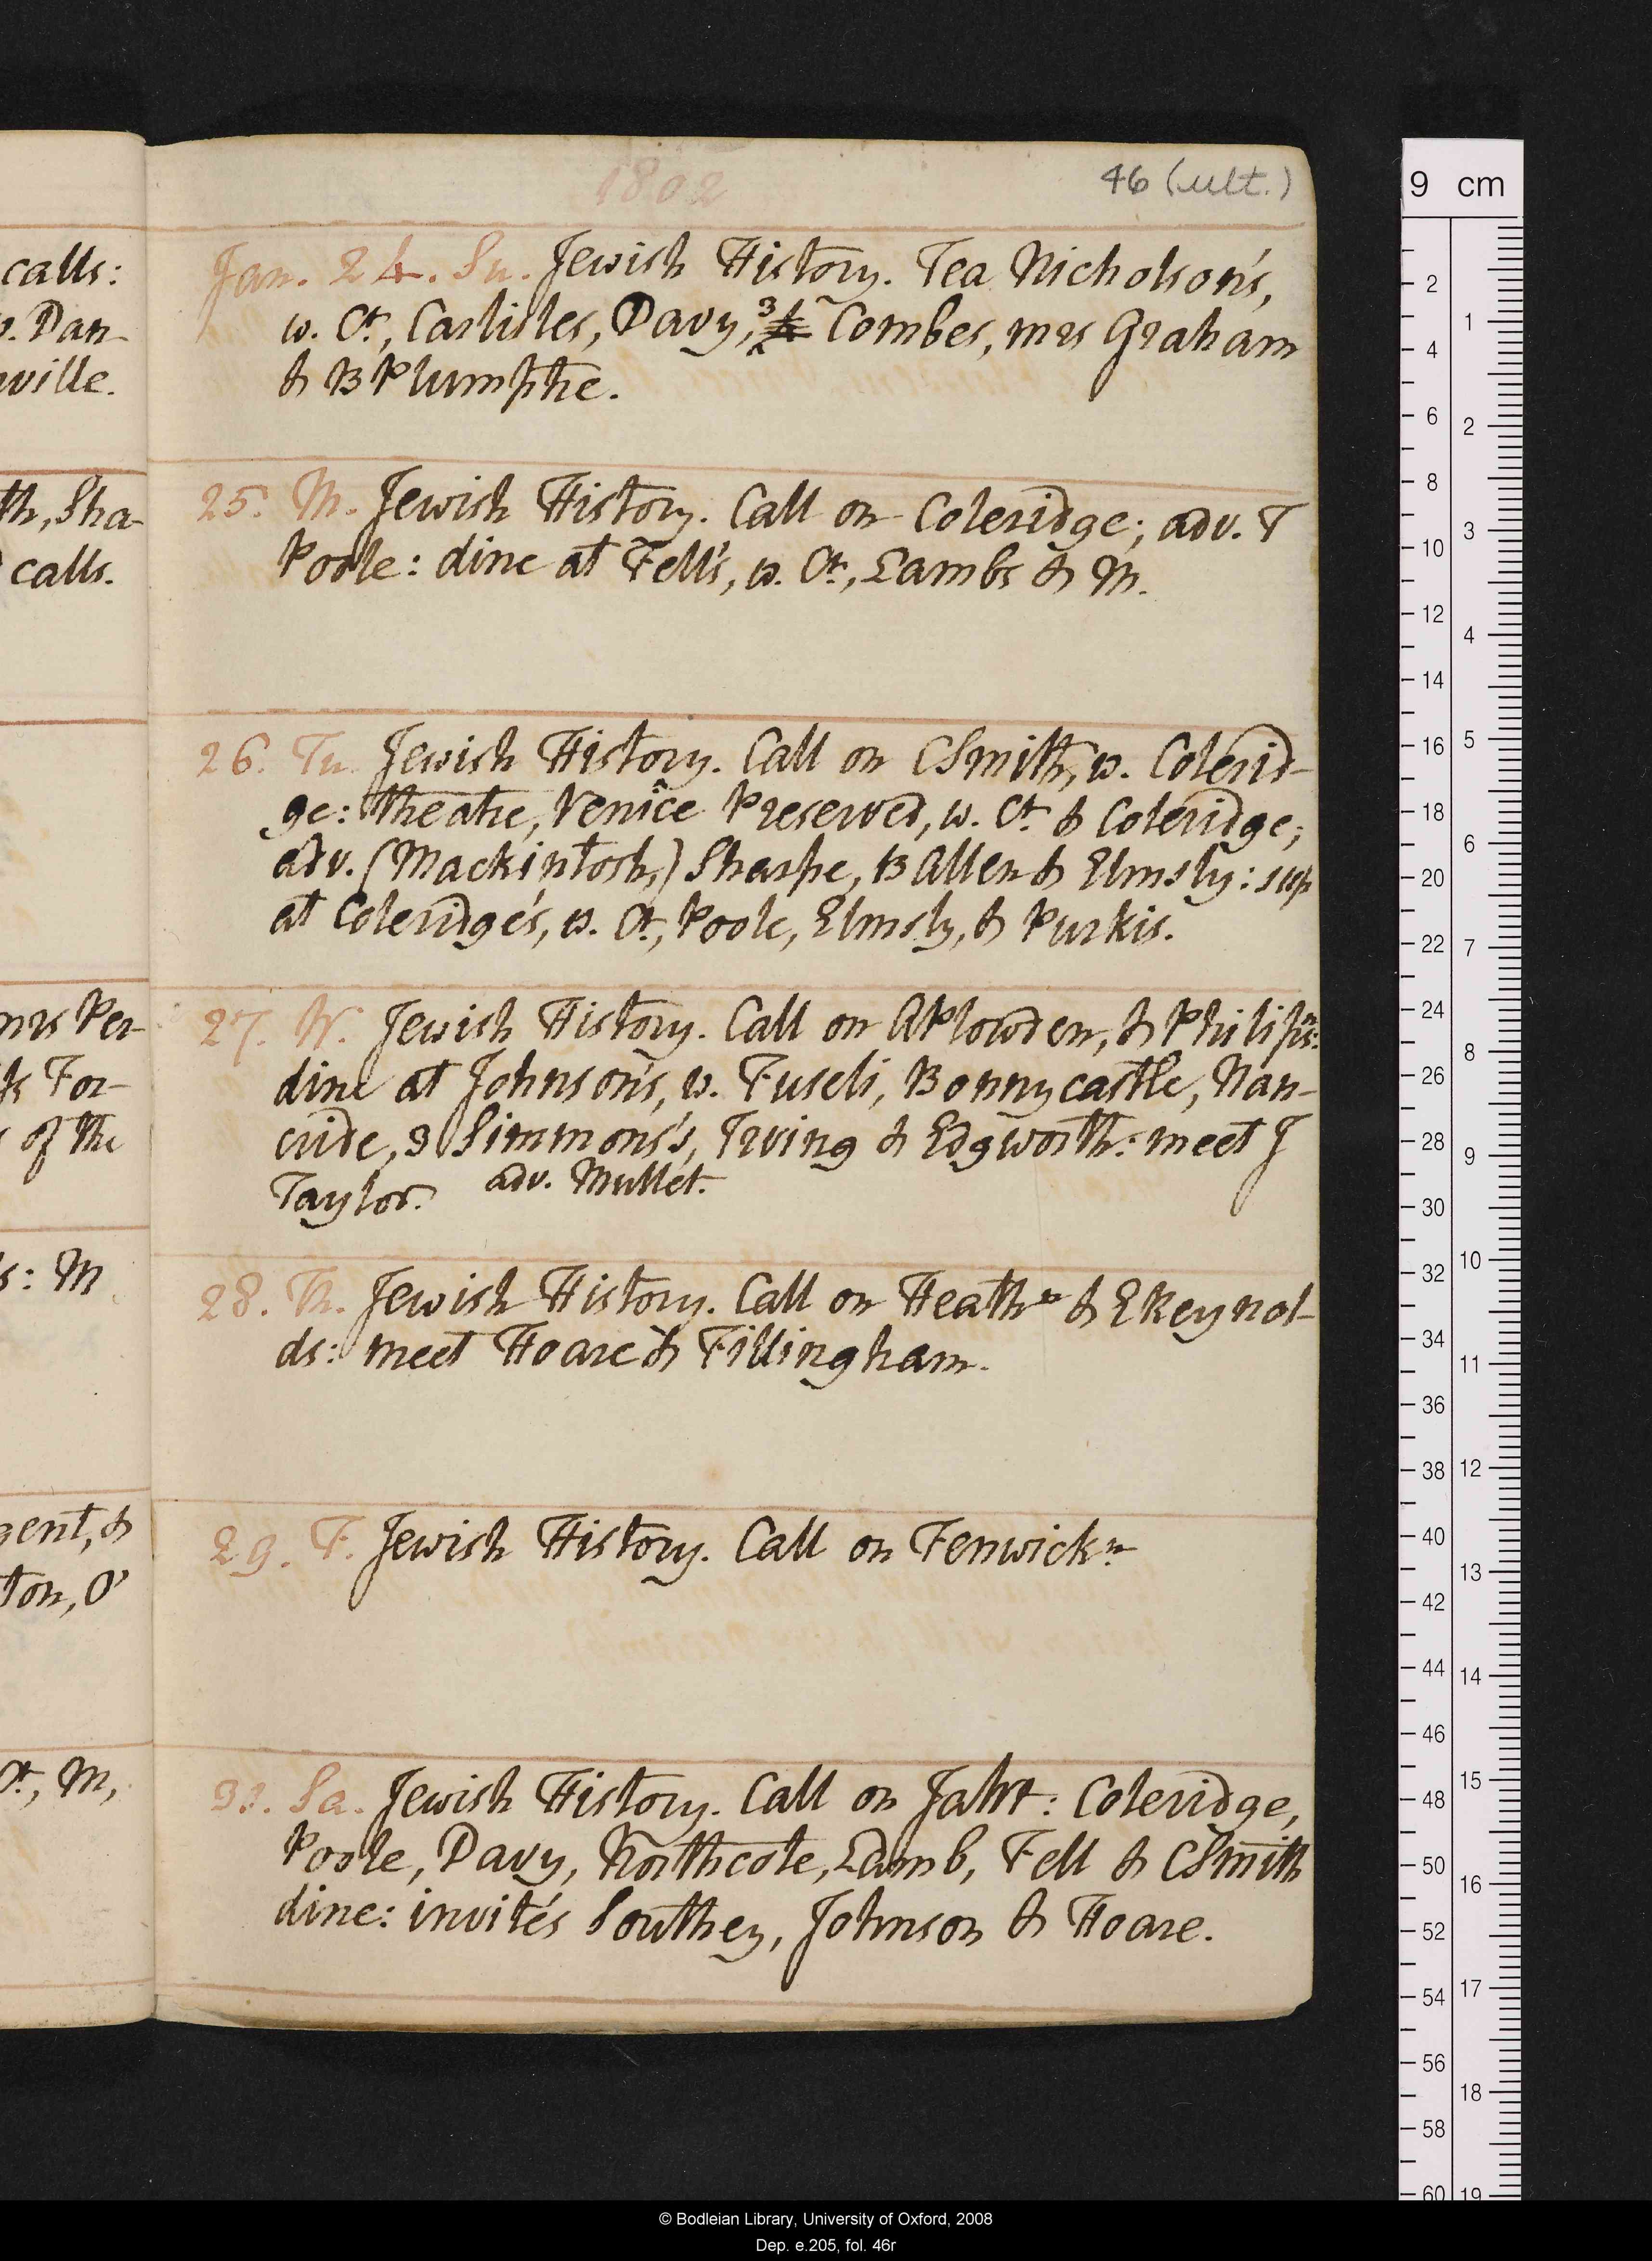 calls:
v. Dan-
ville.
th, Sha-
calls.
mrs Per-
k For-
of the
s: M
gent, &
ton, O'
Ct, M,
1802
46 (ult.)
Jan. 24. Su. Jewish History. Tea Nicholson's,
w. Ct, Carlisles, Davy, 3 Combes, mrs Graham
& B Plumptre.
25. M. Jewish History. Call on Coleridge; adv. T
Poole: dine at Fell's, w. Ct, Lambs & M.
26. Tu. Jewish History. Call on CSmith, w. Colerid-
ge: theatre, Venice Preserved, w. Ct & Coleridge;
adv. (Mackintosh,) Sharpe, B Allen & Elmsly: sup
at Coleridge's, w. Ct, Poole, Elmsly, & Purkis.
27. W. Jewish History. Call on A Plowden, & Philips n:
dine at Johnson's, w. Fuseli, Bonnycastle, Nan-
cride, 3 Simmons's, Irving & Edgworth: meet J
Taylor. adv. Mullet.
28. Th. Jewish History. Call on Heath n & E Reynol-
ds: meet Hoare & Fillingham.
29. F. Jewish History. Call on Fenwick n
30. Sa. Jewish History. Call on Jahrt: Coleridge,
Poole, Davy, Northcote, Lamb, Fell & CSmith
dine: invités Southey, Johnson & Hoare.
9 cm
2
4
6
8
10
12
14
16
18
20
22
24
26
28
30
32
34
36
38
40
42
44
46
48
50
52
54
56
58
60
1
2
3
4
5
6
7
8
9
10
11
12
13
14
15
16
17
18
19
© Bodleian Library, University of Oxford, 2008
Dep. e.205, fol. 46r